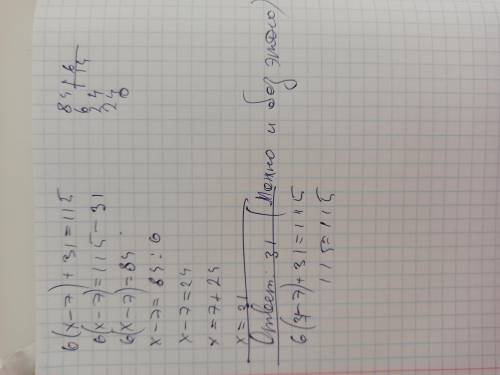 6(x-7)+31=115
6(x-7)=115-31
6(x-7)=84
x-7=84:6
x-7=24
x=7+24
x=31
Ответ: 31 (Можно и без этого)
6(31-7)+31=115
115=115
84 | 6
6 | 14
24
24
0